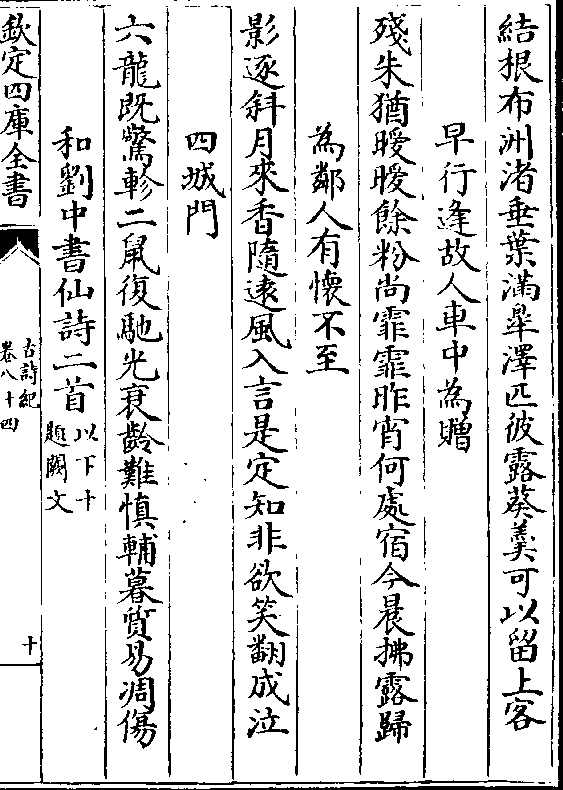 結根布洲渚垂葉滿皐澤匹彼露葵羹可以留上客
早行逢故人車中為贈
殘朱猶曖曖餘粉尚霏霏昨宵何處宿今晨拂露歸
為鄰人有懷不至
影逐斜月來香隨逺風入言是定知非欲笑翻成泣
四城門
六龍既驚軫二鼠復馳光衰齡難慎輔暮質易凋傷
和劉中書仙詩二首以下十題闕文
欽定四庫全書
古詩紀
卷八十四
十